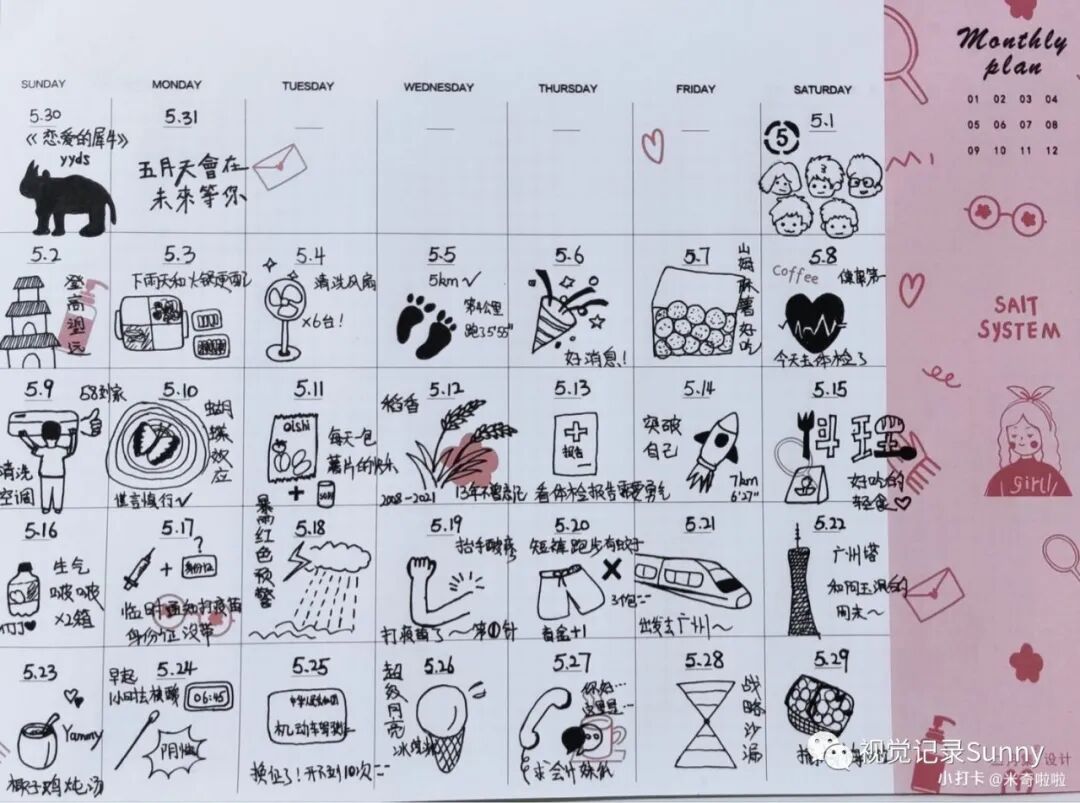 Monthly
plan
01 02 03 04
05 06 07 08
09 10 11 12
SUNDAY
MONDAY
TUESDAY
WEDNESDAY
THURSDAY
FRIDAY
SATURDAY
5.30
《恋爱的犀牛》
yyds
5.31
五月天會在
未來等你
5.1
5
5.2
登高望远
5.3
下雨天和火锅更配
5.4
清洗风扇
×6台!
5.5
5km✓
第4公里
跑3'55"
5.6
好消息!
5.7
山姆麻薯好吃
5.8
Coffee
健康第一
今天去体检了
SALT
SYSTEM
5.9
58到家
清洗
空调
5.10
蝴蝶效应
谨言慎行✓
5.11
oishi
每天一包
薯片的快乐
+
5.12
稻香
2008-2021
13年不曾忘记
5.13
报告
看体检报告需要勇气
5.14
突破
自己
7km
6'27"
5.15
料理
好吃的
轻食
girl
5.16
生气
啵啵
×2箱
5.17
?
+
身份证
临时通知打疫苗
身份证没带
5.18
暴雨红色预警
5.19
抬手酸疼
打疫苗了~第①针
5.20
短裤跑步有蚊子
×
3个包
5.21
出发去广州~
5.22
广州塔
周末~
5.23
Yammy
椰子鸡炖汤
5.24
早起
06:45
阴性
5.25
机动车驾驶
换证了!开不到10次
5.26
超级月亮
冰淇淋
5.27
你好…
这里是…
5.28
战略沙漏
5.29
视觉记录Sunny
设计
小打卡 @米奇啦啦